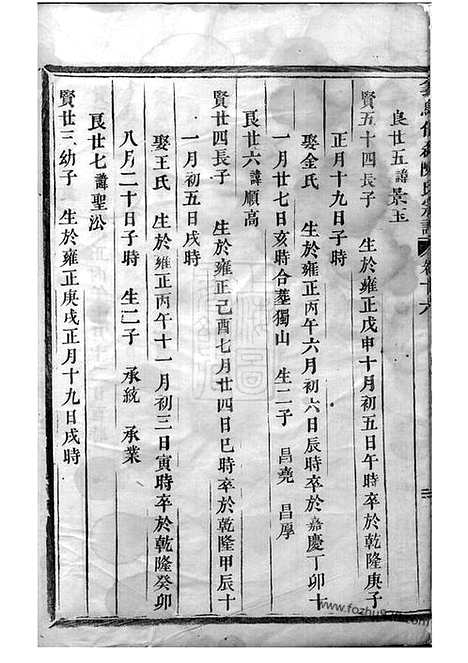 良廿五諱景玉
賢五十四長子 生於雍正戊申十月初五日午時卒於乾隆庚子
正月十九日子時
娶金氏 生於雍正丙午六月初六日辰時卒於嘉慶丁卯十
一月廿七日亥時合葬獨山 生二子 昌堯 昌厚
良廿六諱順高
賢廿四長子 生於雍正己酉七月廿四日巳時卒於乾隆甲辰十
一月初五日戌時
娶王氏 生於雍正丙午十一月初三日寅時卒於乾隆癸卯
八月二十日子時 生二子 承統 承業
良廿七諱聖訟
賢廿三幼子 生於雍正庚戌正月十九日戌時
www.fozhu920.com